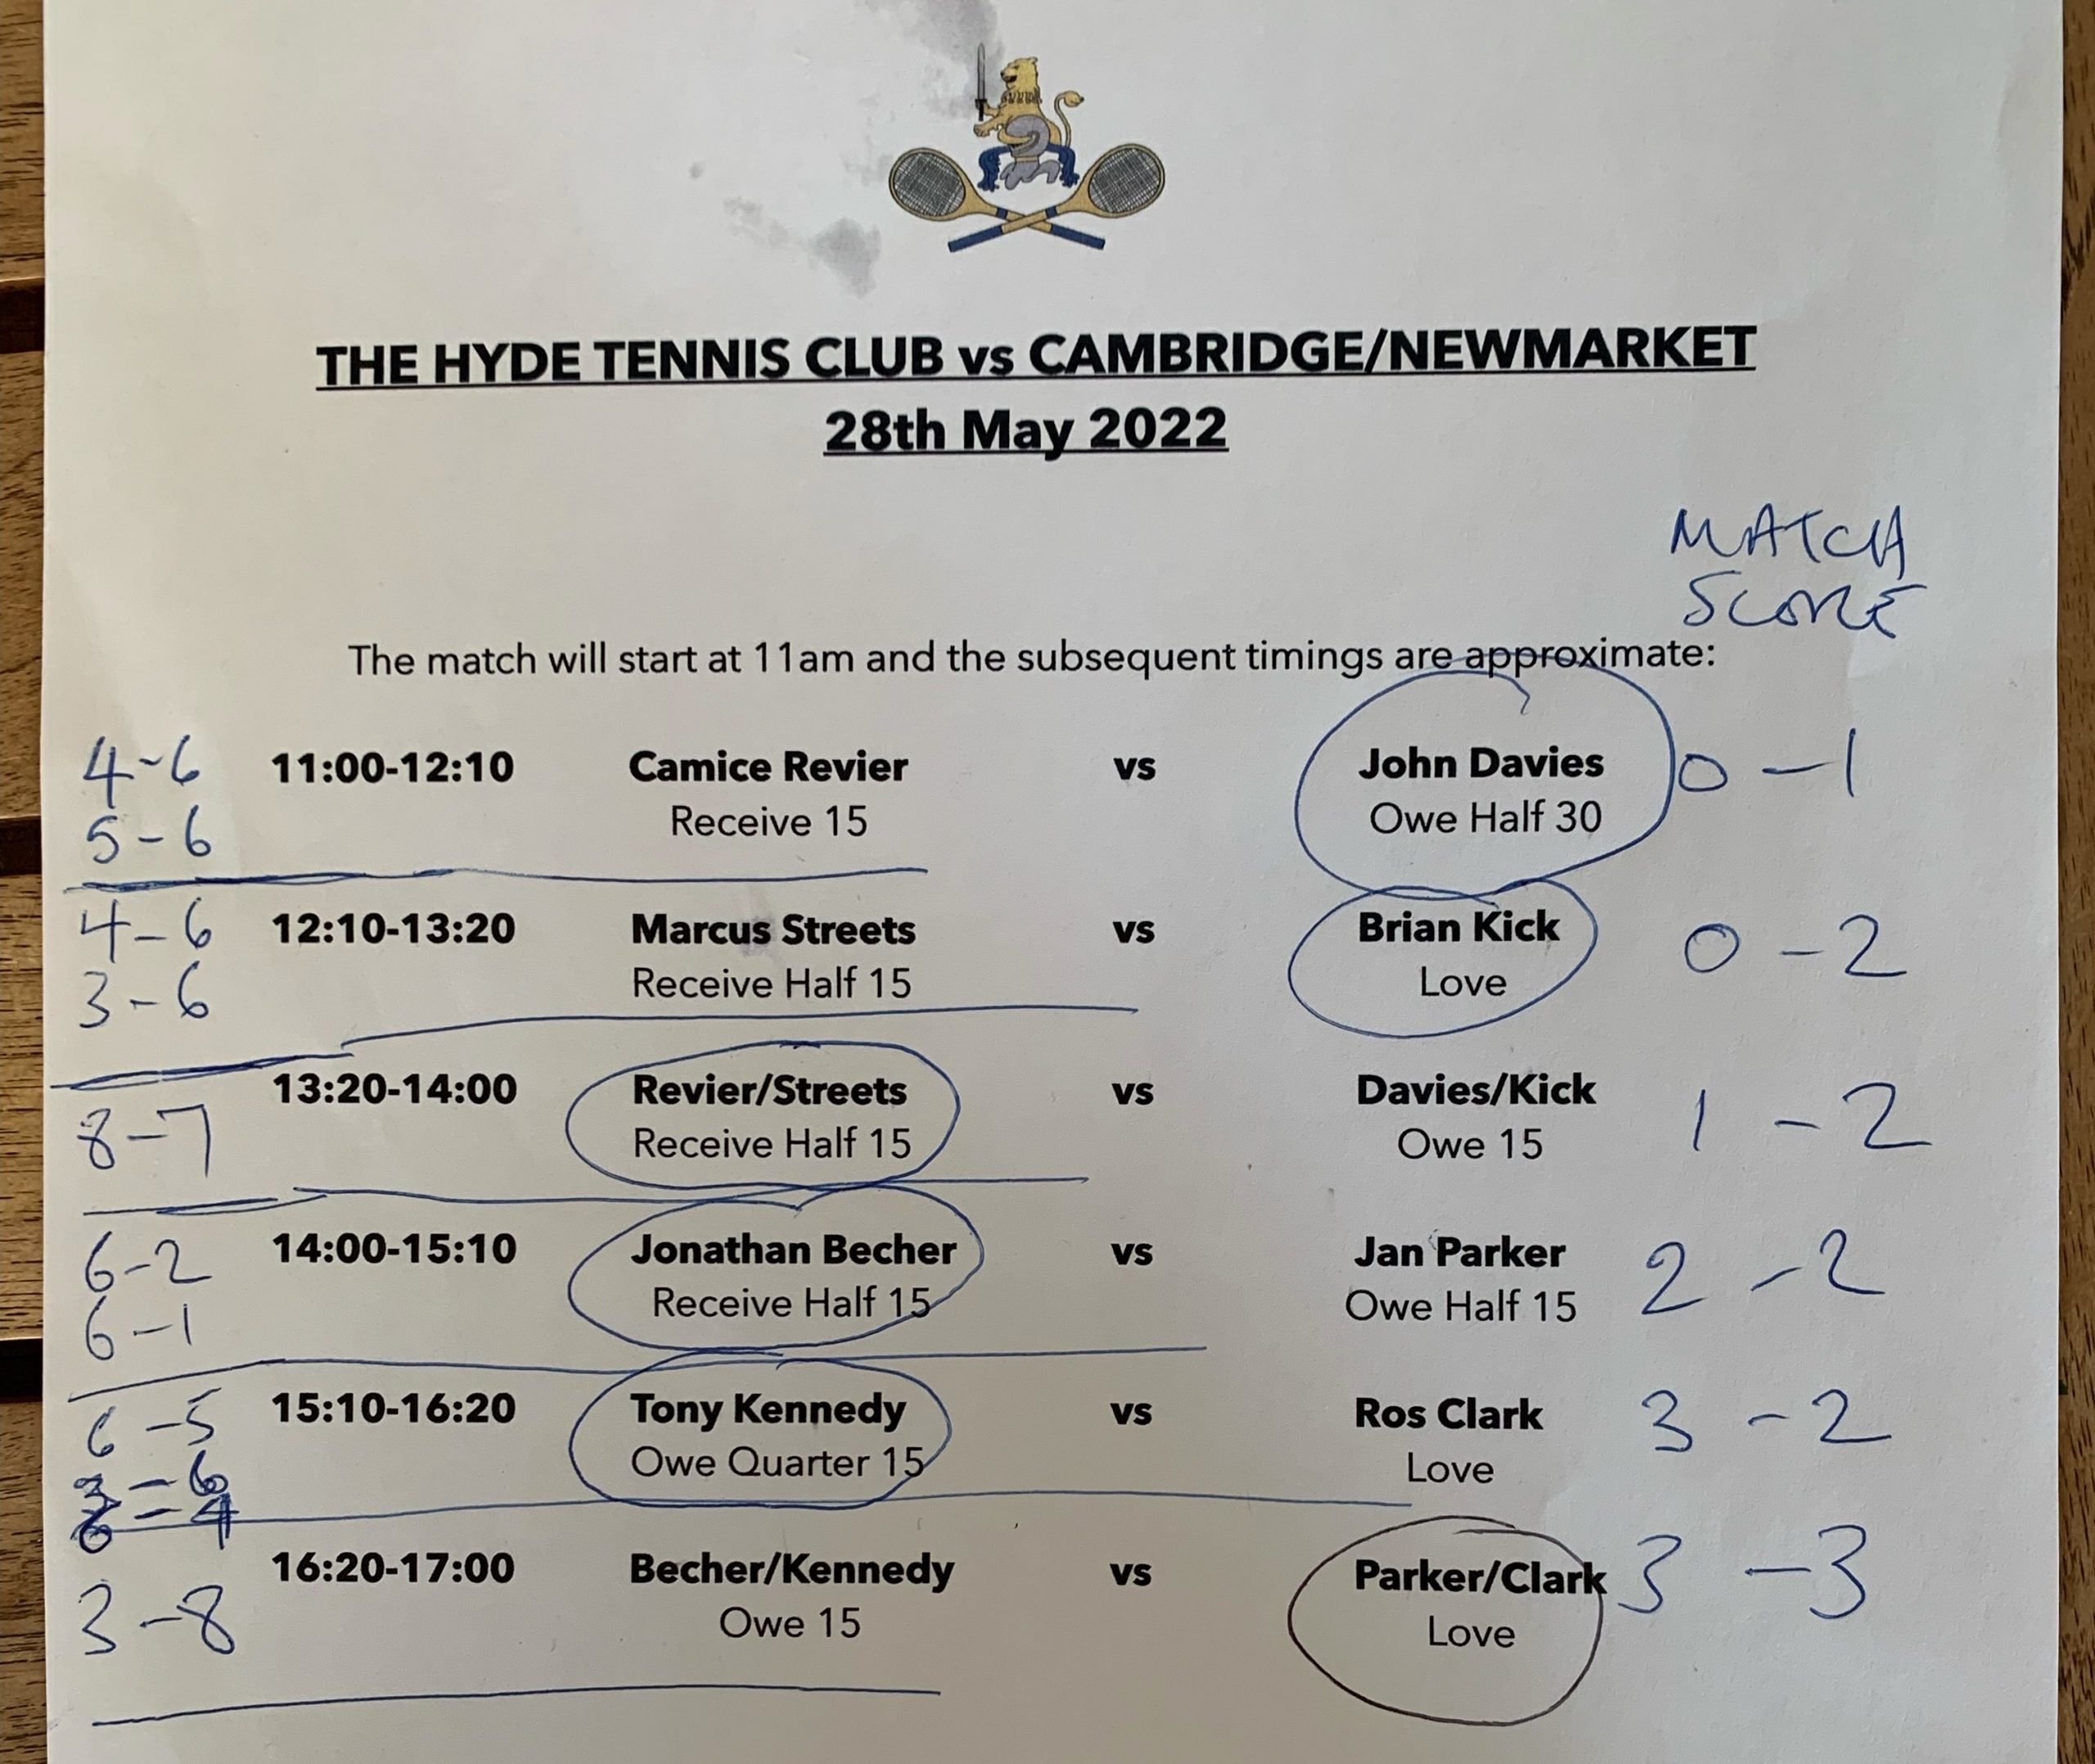 THE HYDE TENNIS CLUB vs CAMBRIDGE/NEWMARKET
28th May 2022
MATCH
SCORE
The match will start at 11am and the subsequent timings are approximate:
4-6 11:00-12:10 Camice Revier vs John Davies 0-1
5-6 Receive 15 Owe Half 30
4-6 12:10-13:20 Marcus Streets vs Brian Kick 0-2
3-6 Receive Half 15 Love
13:20-14:00 Revier/Streets vs Davies/Kick 1-2
8-7 Receive Half 15 Owe 15
6-2 14:00-15:10 Jonathan Becher vs Jan Parker 2-2
6-1 Receive Half 15 Owe Half 15
6-5 15:10-16:20 Tony Kennedy vs Ros Clark 3-2
3-6 Owe Quarter 15 Love
6-4
16:20-17:00 Becher/Kennedy vs Parker/Clark 3-3
3-8 Owe 15 Love